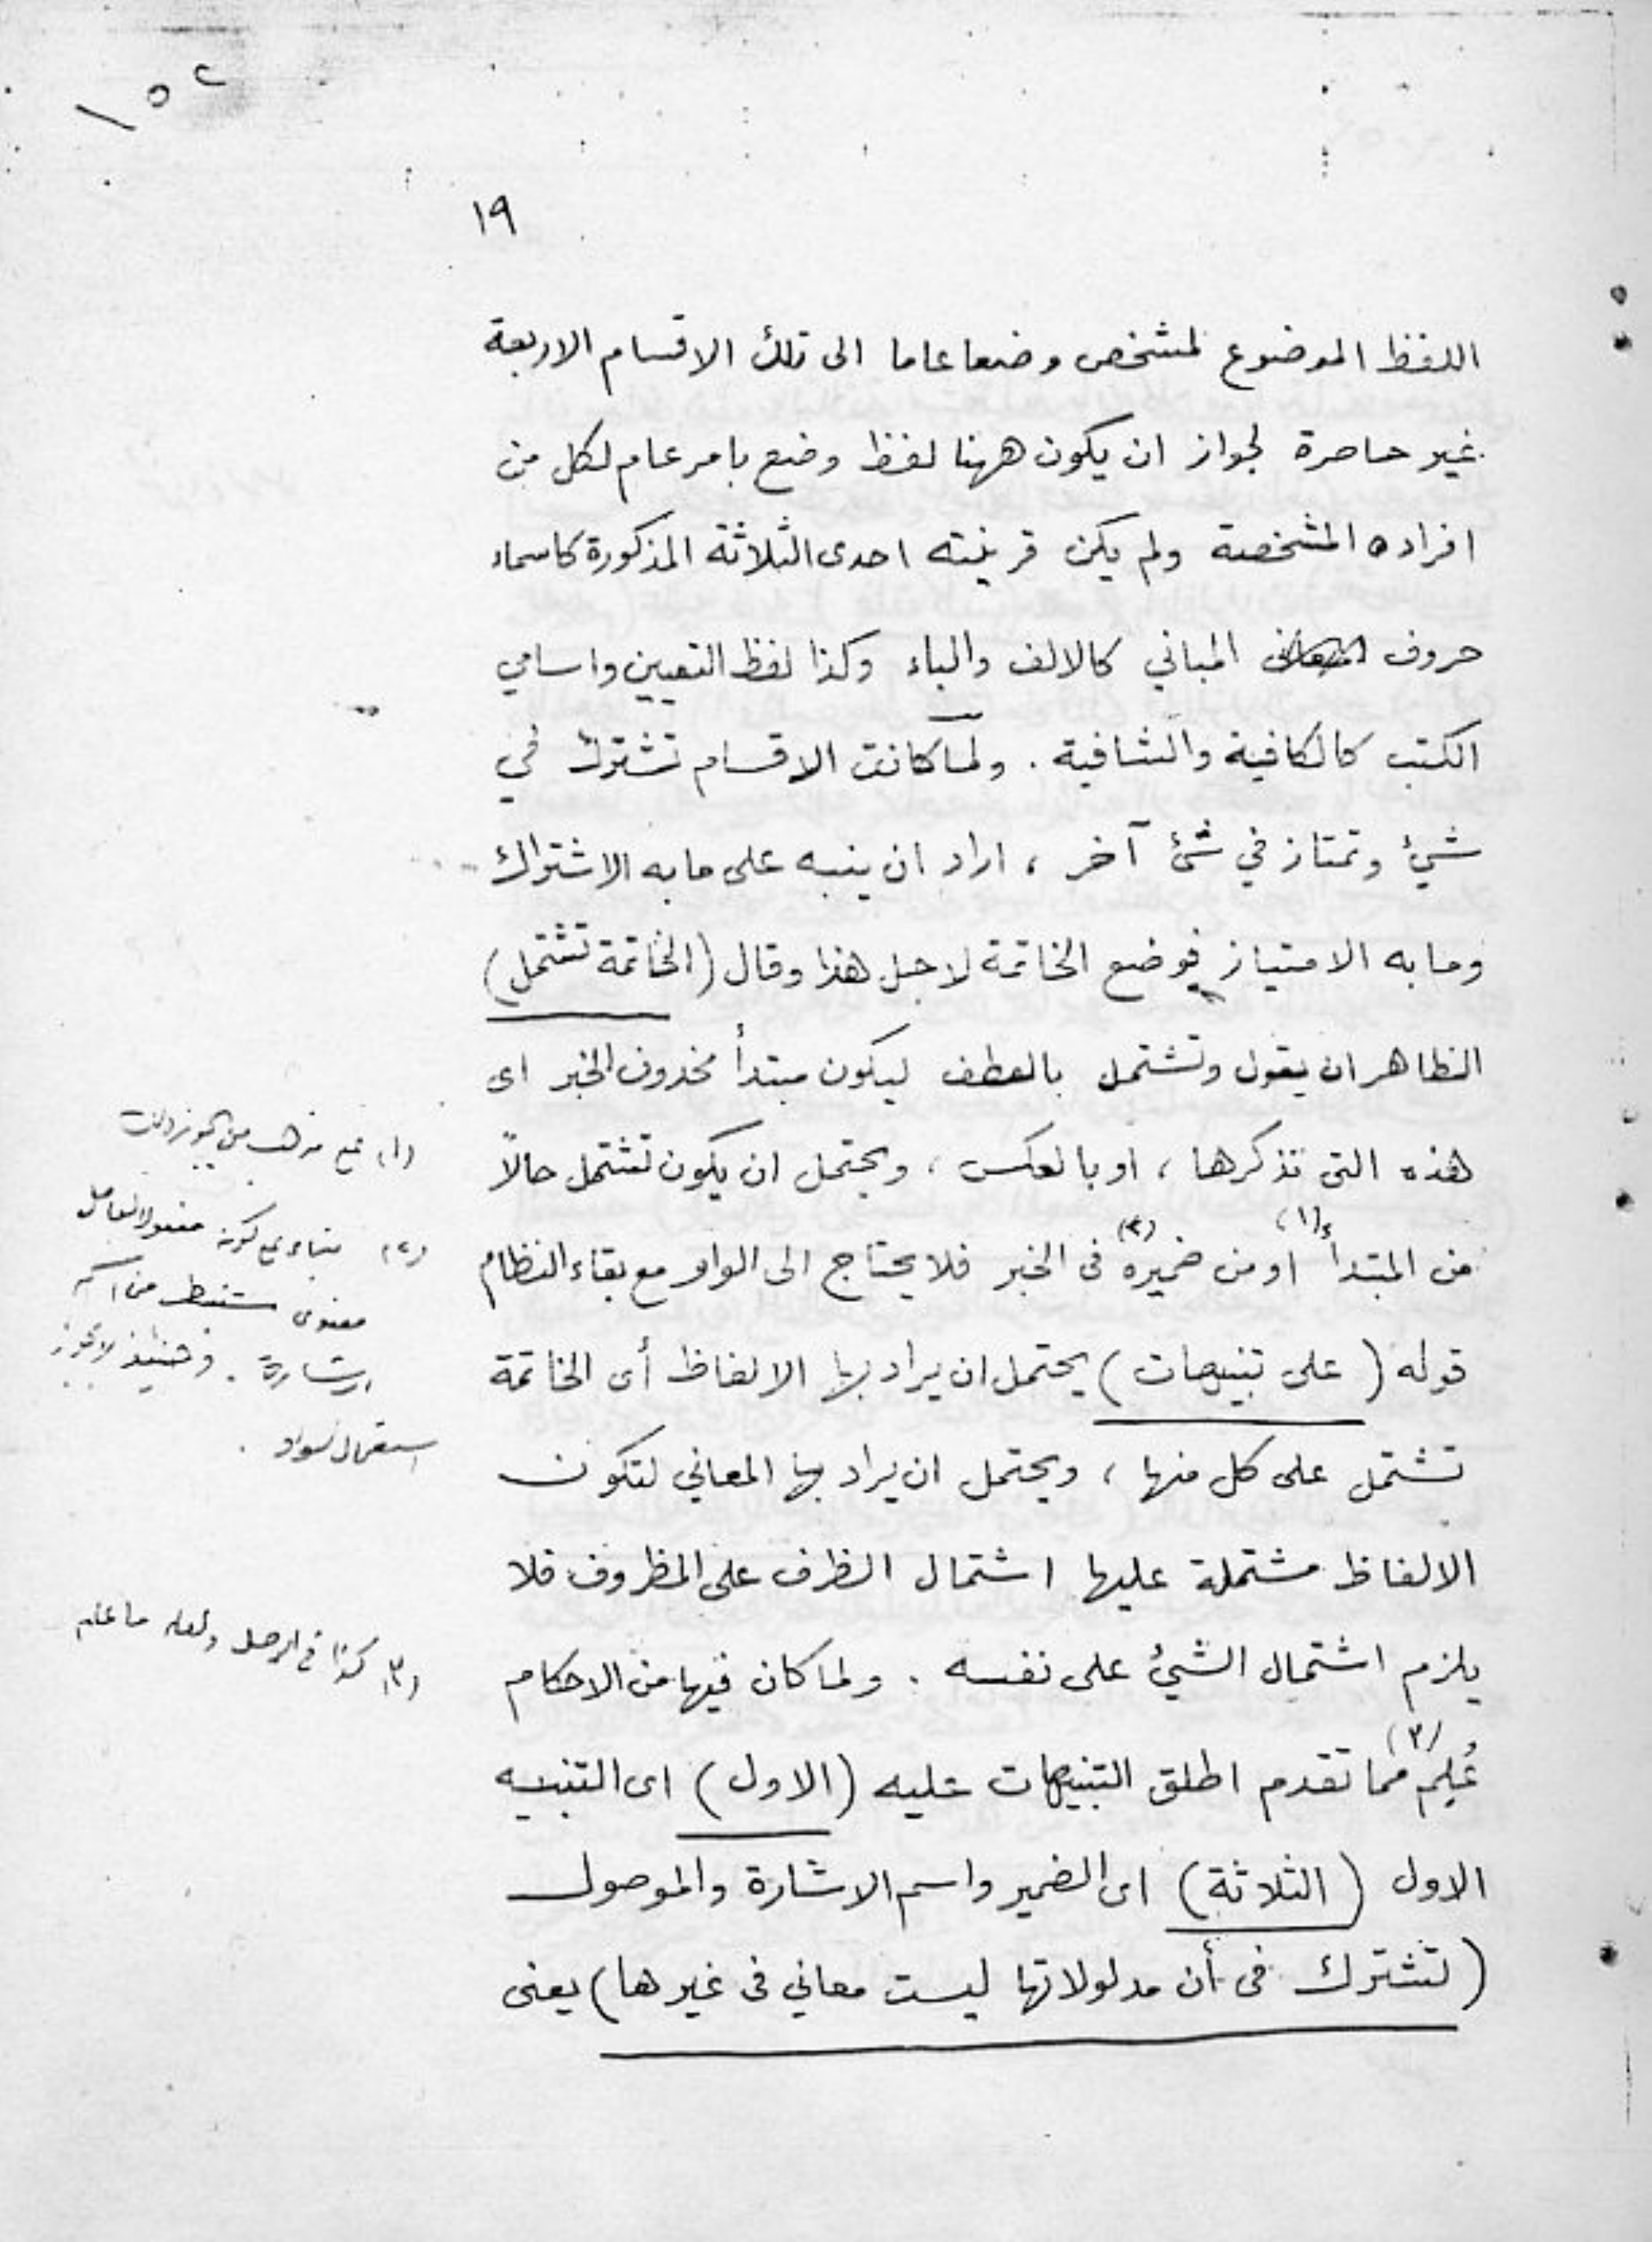 ١٥٢
١٩
اللفظ الموضوع لمشخص وضعا عاما الى تلك الاقسام الاربعة
غير حاصرة لجواز ان يكون ههنا لفظ وضع بامر عام لكل من
افراده المشخصة ولم يكن قرينته احدى الثلاثة المذكورة كاسماء
حروف المباني كالالف والباء وكذا لفظ التعيين واسامي
الكتب كالكافية والشافية . ولما كانت الاقسام تشترك في
شيئ وتمتاز في شئ آخر ، اراد ان ينبه على ما به الاشتراك
وما به الامتياز فوضع الخاتمة لاجل هذا وقال (الخاتمة تشتمل)
الظاهر ان يقول وتشتمل بالعطف ليكون مبتدأ محذوف الخبر اى
هذه التى نذكرها ، او بالعكس ، ويحتمل ان يكون تشتمل حالاً
من المبتدأ (١) او من ضميره (٢) فى الخبر فلا يحتاج الى الواو مع بقاء النظام
قوله (على تنبيهات) يحتمل ان يراد بها الالفاظ أى الخاتمة
تشتمل على كل منها ، ويحتمل ان يراد بها المعاني لتكون
الالفاظ مشتملة عليها اشتمال الظرف على المظروف فلا
يلزم اشتمال الشيئ على نفسه . ولما كان فيها من الاحكام
عُلِم (٣) مما تقدم اطلق التنبيهات عليه (الاول) اى التنبيه
الاول (الثلاثة) اى الضمير واسم الاشارة والموصول
(تشترك فى أن مدلولاتها ليست معاني فى غيرها) يعنى
(١) مذهب من يجوز ذلك
(٢) بناء كونه معمولا لعامل
معنوى مستنبط من اسم
اشارة . وحينئذ لا يجوز
استعمال الواو .
(٣) كذا فى الاصل ولعله ما علم